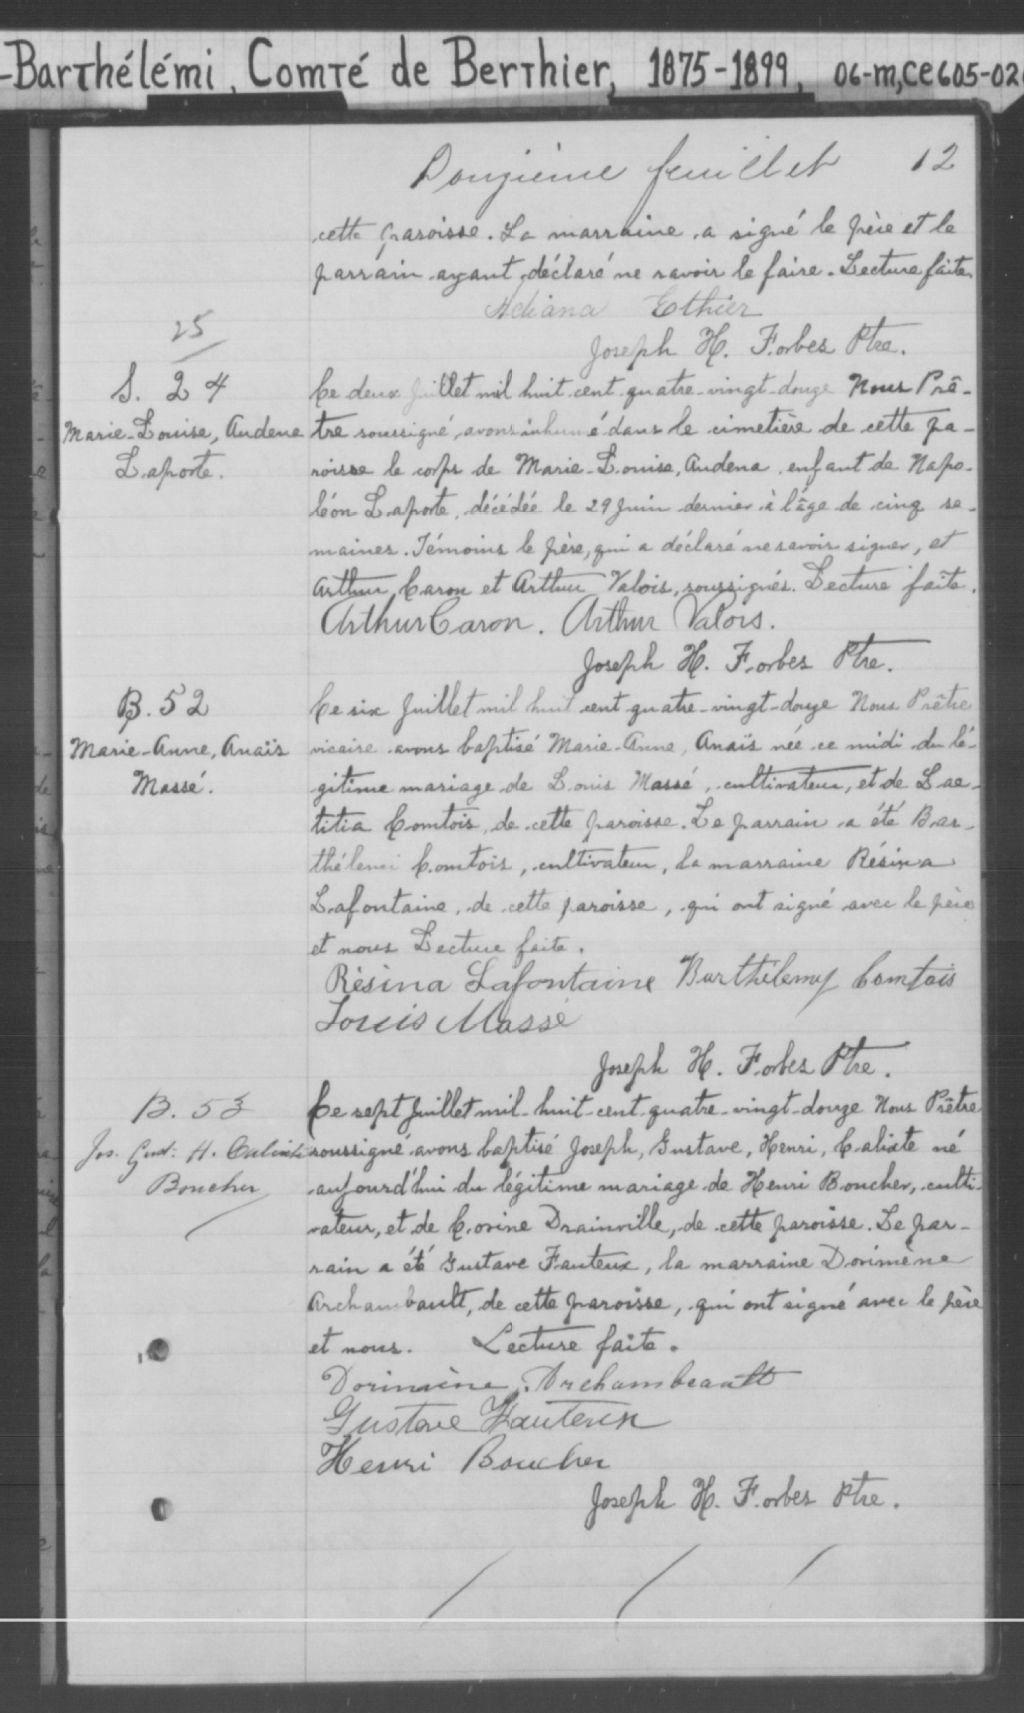 -Barthélémi, Comté de Berthier, 1875-1899, 06-m,CE605-02
Douzième feuillet 12
cette paroisse. La marraine a signé le père et le
parrain ayant déclaré ne savoir le faire. Lecture faite.
Adiana Ethier
Joseph H. Forbes Ptre.
25
S. 24
Marie-Louise, Andena
Laporte.
Ce deux Juillet mil huit cent quatre-vingt-douze Nous Prê-
tre soussigné avons inhumé dans le cimetière de cette pa-
roisse le corps de Marie-Louise, Andena enfant de Napo-
léon Laporte, décédée le 29 Juin dernier à l'âge de cinq se-
maines. Témoins le père, qui a déclaré ne savoir signer, et
Arthur Caron et Arthur Valois, soussignés. Lecture faite.
Arthur Caron. Arthur Valois.
Joseph H. Forbes Ptre.
B. 52
Marie-Anne, Anaïs
Massé.
Ce six Juillet mil huit cent quatre-vingt-douze Nous Prêtre
vicaire avons baptisé Marie-Anne, Anaïs née ce midi du lé-
gitime mariage de Louis Massé, cultivateur, et de Lae-
titia Comtois, de cette paroisse. Le parrain a été Bar-
thélemi Comtois, cultivateur, la marraine Résina
Lafontaine, de cette paroisse, qui ont signé avec le père
et nous Lecture faite.
Résina Lafontaine Barthélemy Comtois
Louis Massé
Joseph H. Forbes Ptre.
B. 53
Jos. Gust. H. Calixte
Boucher
Ce sept Juillet mil-huit-cent-quatre-vingt-douze Nous Prêtre
soussigné avons baptisé Joseph, Gustave, Henri, Calixte né
aujourd'hui du légitime mariage de Henri Boucher, culti-
vateur, et de Corine Drainville, de cette paroisse. Le par-
rain a été Gustave Fauteux, la marraine Dorimène
Archambault, de cette paroisse, qui ont signé avec le père
et nous. Lecture faite.
Dorimène Archambeault
Gustave Fauteux
Henri Boucher
Joseph H. Forbes Ptre.